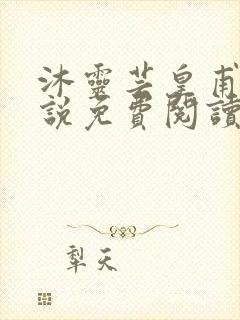 沐靈芸皇甫
說免費閱讀
犁天